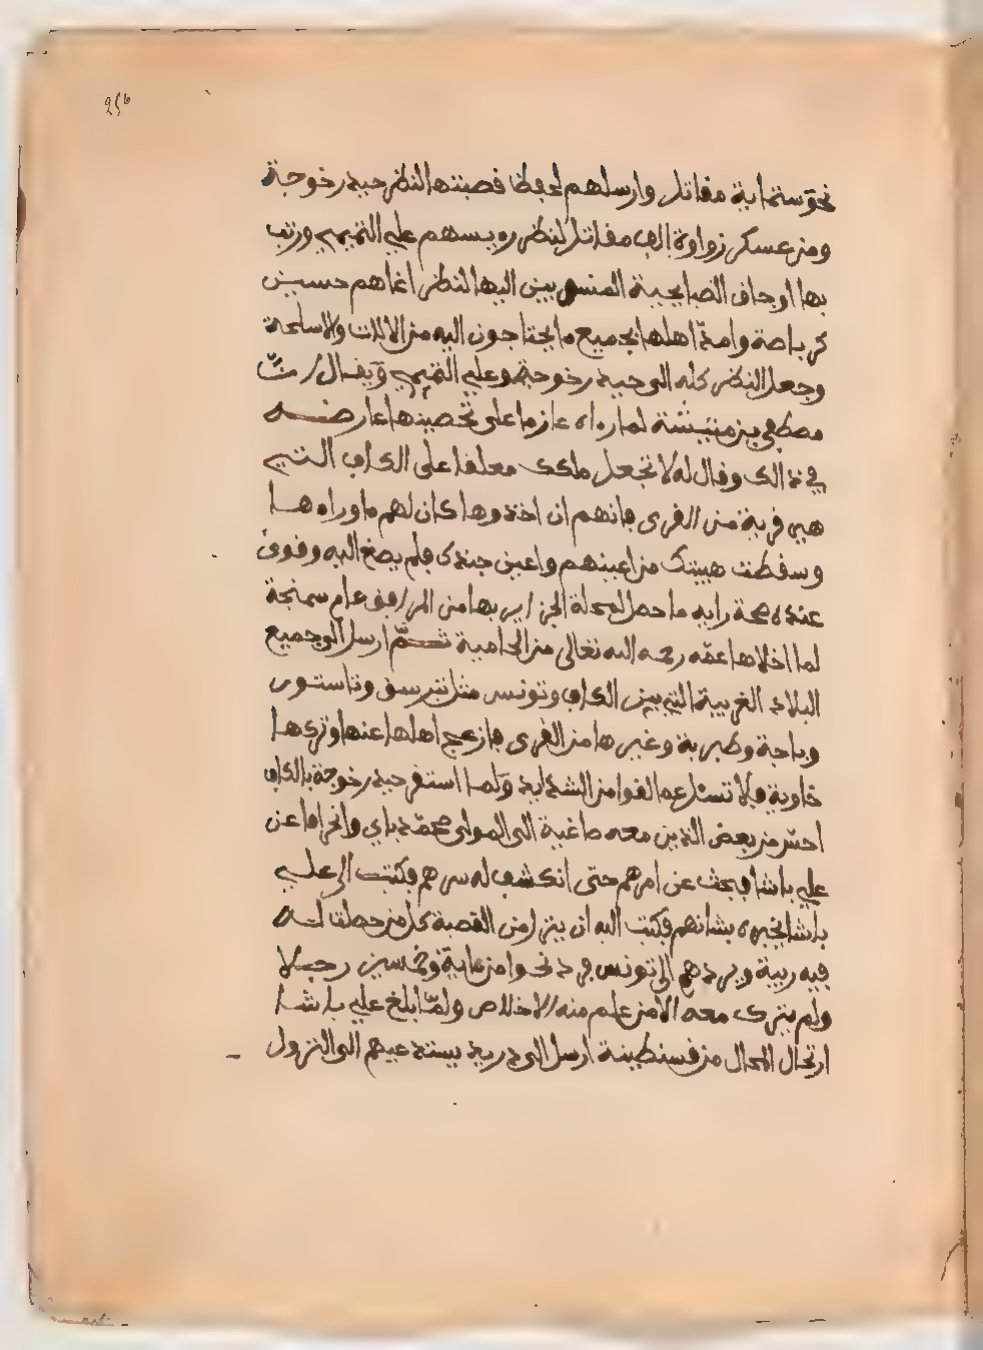 256
نحو ستماية مقاتل وارسلهم لحفظ قصبتها لنظر حيدر خوجة
ومن عسكر زواوة الف مقاتل لنظر رءيسهم علي التميمي ورتب
بها اوجاق الصبايحية المنسوبين اليها لنظر اغاهم حسين
كرباصة وامدّ اهلها بجميع ما يحتاجون اليه من الالات والاسلحة
وجعل النظر كله الى حيدر خوجة وعلي التميمي ويقال ان
مصطفى بن متيشة لما رءاه عازما على تحصينها عارضه
في ذالك وقال له لا تجعل ملكك معلقا على الكاف التي
هي قرية من القرى فانهم ان اخذوها كان لهم ما وراءها
وسقطت هيبتك من اعينهم واعين جندك فلم يصغ اليه وقوى
عنده صحة رايه ما حصل لمحلة الجزاير بها من المرافق عام سمنجة
لما اخلاها عمّه رحمه الله تعالى من الحامية ثمّ ارسل الى جميع
البلاد الغربية التي بين الكاف وتونس مثل تبرسق وتاستور
وباجة وطبربة وغيرها من القرى فازعج اهلها عنها وتركها
خاوية فلا تسئل عما لقوا من الشدايد ولما استقر حيدر خوجة بالكاف
احسّ من بعض الذين معه صاغية الى المولى محمّد باي وانحرافا عن
علي باشا فبحث عن امرهم حتى انكشف له سرهم فكتب الى علي
باشا يخبره بشانهم فكتب اليه ان ينزل من القصبة كل من حصلت له
فيه ريبة ويردهم الى تونس فرد نحوا من ماية وخمسين رجلا
ولم يترك معه الا من علم منه الاخلاص ولمّا بلغ علي باشا
ارتحال المحال من قسنطينة ارسل الى دريد يستدعيهم الى النزول